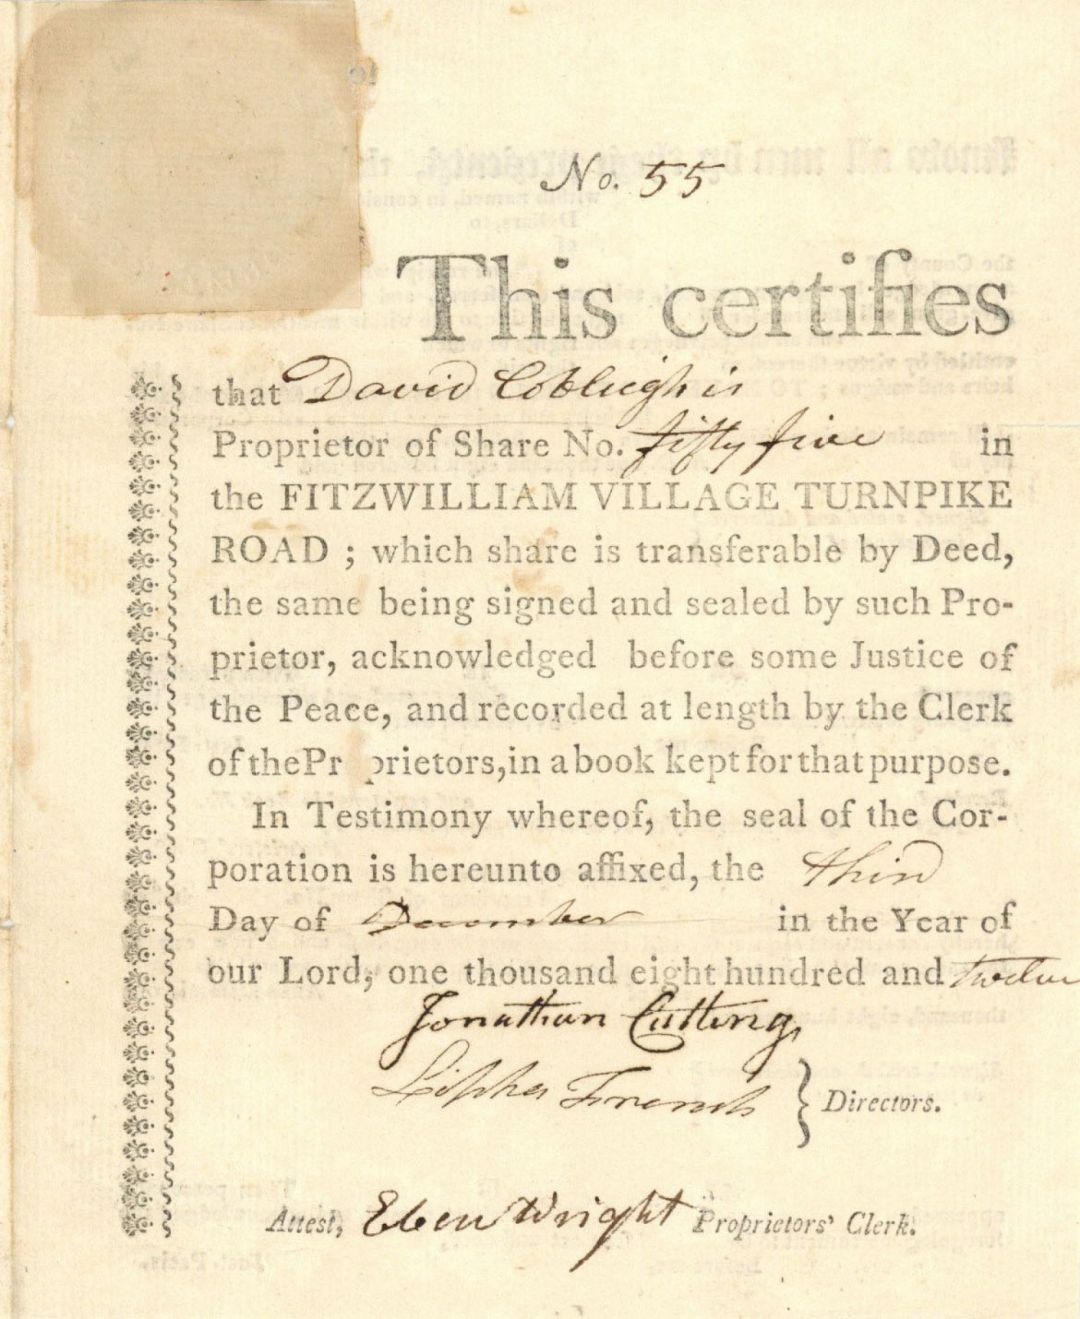 No. 55
This certifies
that David Cobleigh is
Proprietor of Share No. fifty five in
the FITZWILLIAM VILLAGE TURNPIKE
ROAD ; which share is transferable by Deed,
the same being signed and sealed by such Pro-
prietor, acknowledged before some Justice of
the Peace, and recorded at length by the Clerk
of the Pr prietors, in a book kept for that purpose.
In Testimony whereof, the seal of the Cor-
poration is hereunto affixed, the third
Day of December in the Year of
our Lord, one thousand eight hundred and twelve
Jonathan Cutting,
French } Directors.
Attest, Eben Wright Proprietors' Clerk.